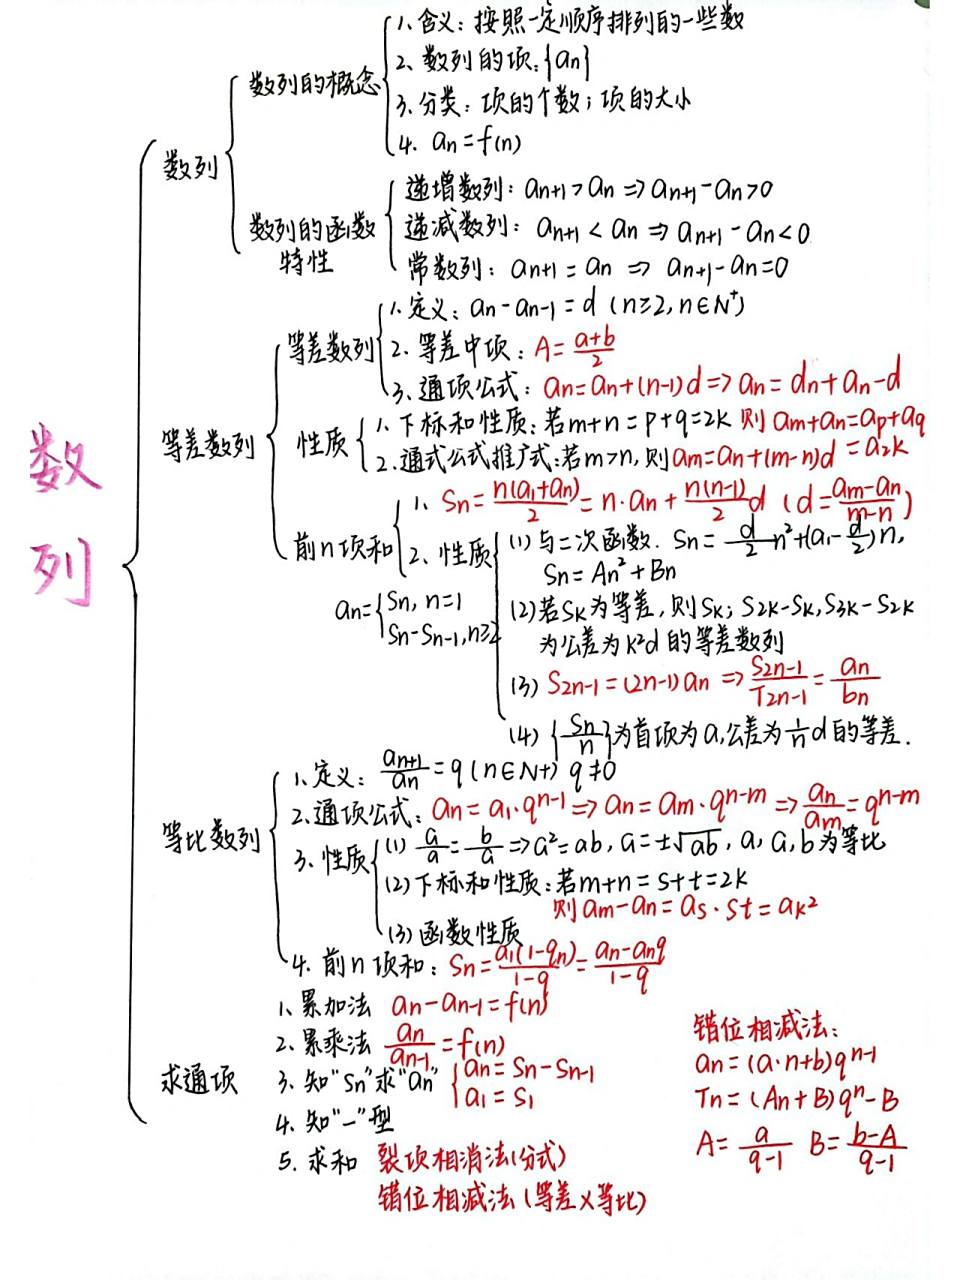 数列
数列
数列的概念
1. 含义：按照一定顺序排列的一些数
2. 数列的项：{an}
3. 分类：项的个数；项的大小
4. an=f(n)
数列的函数特性
递增数列：an+1>an⇒an+1-an>0
递减数列：an+1<an⇒an+1-an<0
常数列：an+1=an⇒an+1-an=0
等差数列
等差数列
1. 定义：an-an-1=d (n≥2,n∈N⁺)
2. 等差中项：A=(a+b)/2
3. 通项公式：an=an+(n-1)d⇒an=dn+an-d
性质
1. 下标和性质：若m+n=p+q=2K 则am+an=ap+aq
=a2k
2. 通式公式推广式：若m>n,则am=an+(m-n)d
前n项和
1. Sn=n(a1+an)/2=n·an+n(n-1)/2 d (d=(am-an)/(m-n))
2. 性质
(1) 与二次函数. Sn=d/2 n²+(a1-d/2)n,
Sn=An²+Bn
(2) 若SK为等差,则SK; S2K-SK,S3K-S2K
为公差为K²d的等差数列
(3) S2n-1=(2n-1)an⇒S2n-1/T2n-1=an/bn
(4) {Sn/n}为首项为a,公差为1/n d的等差.
an={Sn, n=1
Sn-Sn-1,n≥2
等比数列
1. 定义：an+1/an=q (n∈N+) q≠0
2. 通项公式：an=a1·qⁿ⁻¹⇒an=am·qⁿ⁻ᵐ⇒an/am=qⁿ⁻ᵐ
3. 性质
(1) G/a=b/G⇒G²=ab, G=±√ab, a, G, b为等比
(2) 下标和性质：若m+n=s+t=2K
则am-an=as·st=aK²
(3) 函数性质
4. 前n项和：Sn=a1(1-qn)/1-q=an-anq/1-q
求通项
1. 累加法 an-an-1=f(n)
2. 累乘法 an/an-1=f(n)
3. 知"Sn"求"an" {an=Sn-Sn-1
a1=S1
4. 知"-"型
5. 求和 裂项相消法(分式)
错位相减法(等差×等比)
错位相减法：
an=(a·n+b)qⁿ⁻¹
Tn=(An+B)qⁿ-B
A=a/q-1 B=b-A/q-1